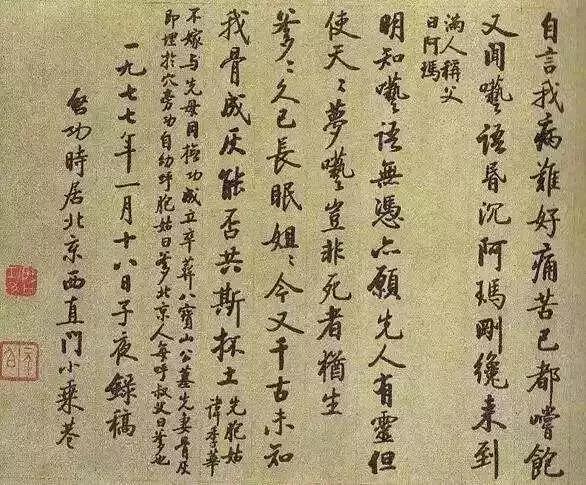 自言我病難好痛苦已都嚐飽
又聞囈語昏沉阿瑪剛纔來到
滿人稱父
曰阿瑪
明知囈語無憑亦願先人有靈但
使天〻夢囈豈非死者猶生
爹〻久已長眠姐〻今又千古未知
我骨成灰能否共斯抔土
先胞姑
諱季華
不嫁與先母同撫功成立卒葬八寶山公墓先妻骨灰
即埋於穴旁功自幼呼胞姑曰爹北京人每呼叔父曰爹也
一九七七年一月十八日子夜錄稿
啟功時居北京西直門小乘巷